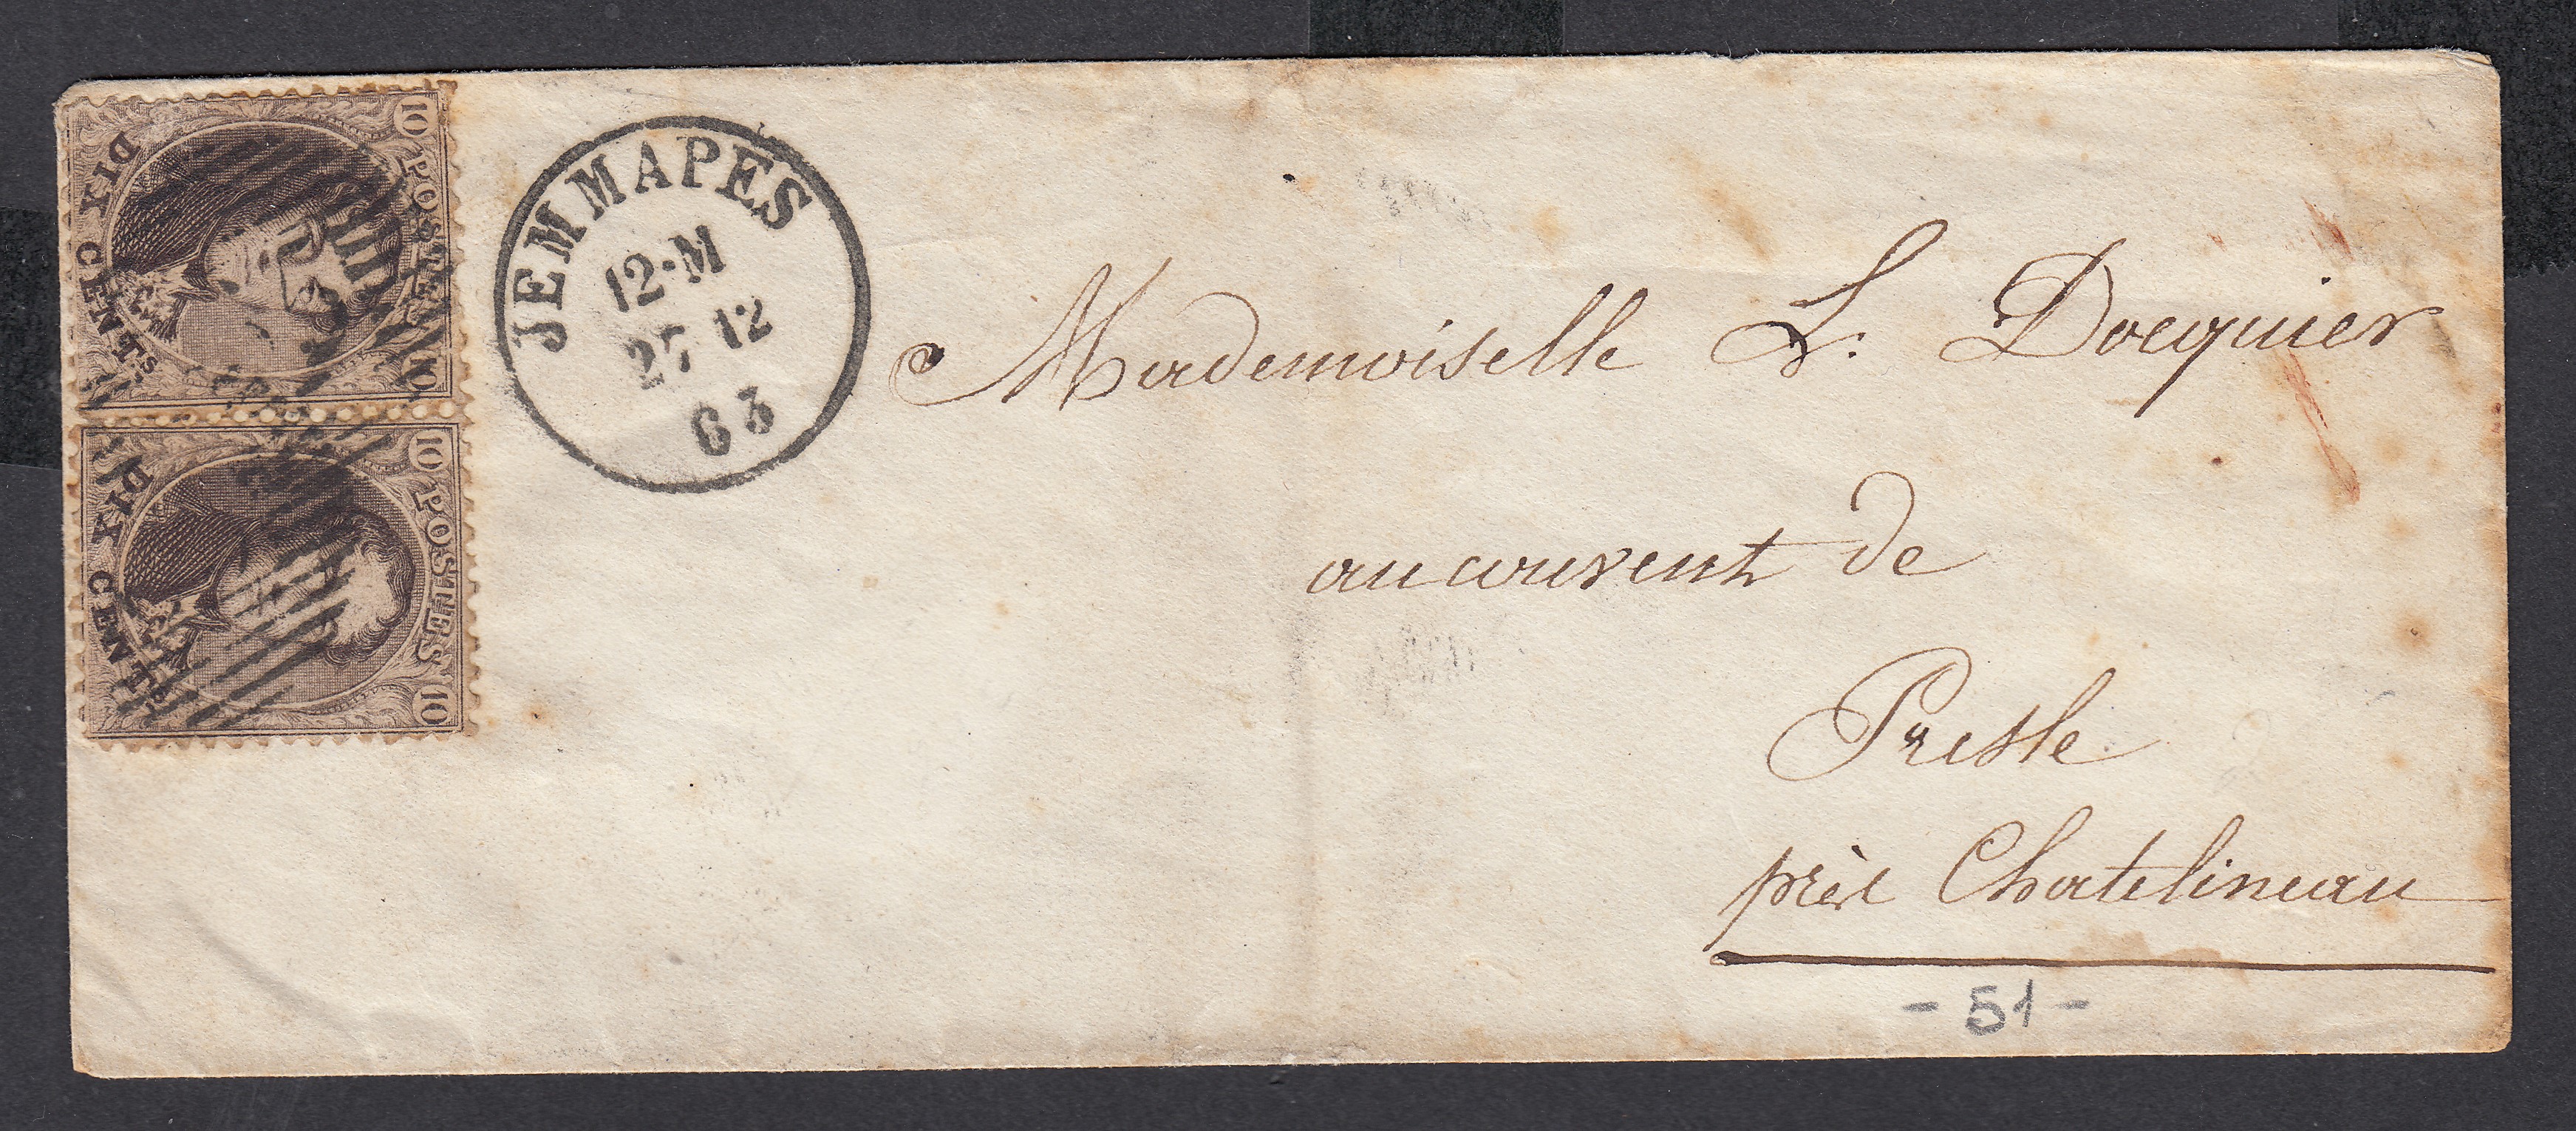 10 POSTES 10
DIX CENTS
10 POSTES 10
DIX CENTS
JEMMAPES
12·M
27 12
63
Mademoiselle L. Docquier
au couvent de
Presle
près Chatelineau
- 51 -